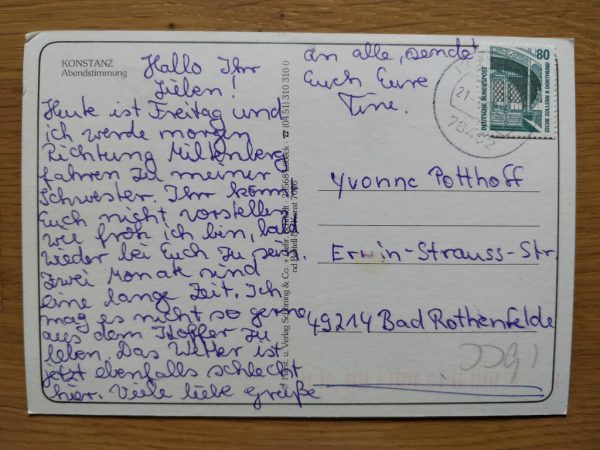 KONSTANZ
Abendstimmung
Hallo Ihr
Lieben!
Heute ist Freitag und
ich werde morgen
Richtung Miltenberg
fahren zu meiner
Schwester. Ihr könnt
Euch nicht vorstellen
wie froh ich bin, bald
wieder bei Euch zu sein.
Zwei Monate sind
eine lange Zeit. Ich
mag es nicht so gerne
aus dem Koffer zu
leben. Das Wetter ist
jetzt ebenfalls schlecht
hier. Viele liebe Grüße
an alle, sendet
Euch Eure
Tine.
u. Verlag Schöning & Co. + Gebr. Schmidt · 23568 Lübeck · ☎ (0451) 310 310 0
80
DEUTSCHE BUNDESPOST
ZECHE ZOLLERN II DORTMUND
21.
78462
Yvonne Potthoff
Erwin-Strauss-Str.
49214 Bad Rothenfelde